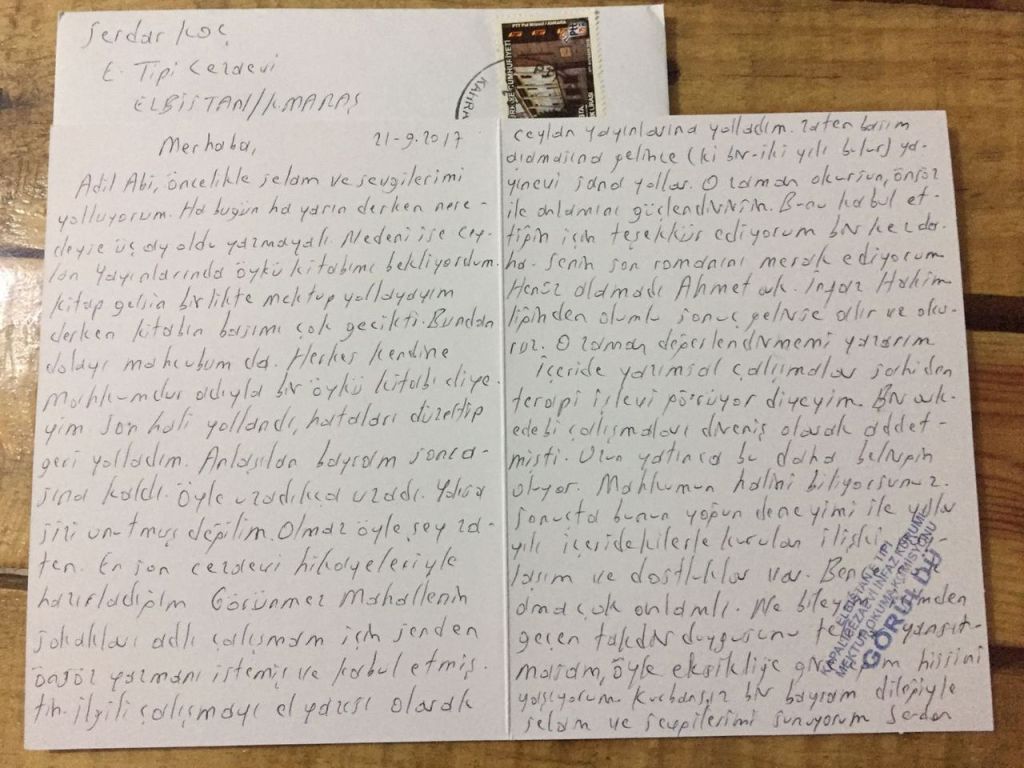 Serdar Koç
E Tipi Cezaevi
ELBİSTAN/KMARAŞ
PTT Pul Müzesi / ANKARA
CUMHURİYETİ
KAHRA
Merhaba,
21-9.2017
Adil Abi, öncelikle selam ve sevgilerimi
yolluyorum. Ha bugün ha yarın derken nere-
deyse üç ay oldu yazmayalı. Nedeni ise Cey-
lan Yayınlarında öykü kitabımı bekliyordum.
kitap gelsin birlikte mektup yollayayım
derken kitabın basımı çok gecikti. Bundan
dolayı mahcubum da. Herkes kendine
Mahkumdur adıyla bir öykü kitabı diye-
yim. Son hali yollandı, hataları düzeltip
geri yolladım. Anlaşılan bayram sonra-
sına kaldı. Öyle uzadıkça uzadı. Yoksa
sizi unutmuş değilim. Olmaz öyle şey za-
ten. En son cezaevi hikayeleriyle
hazırladığım Görünmez Mahallenin
sokakları adlı çalışmam için senden
önsöz yazmanı istemiş ve kabul etmiş-
tin. ilgili çalışmayı el yazısı olarak
ceylan yayınlarına yolladım. zaten basım
aşamasına gelince (ki bir-iki yılı bulur) ya-
yınevi sana yollar. O zaman okursun, önsöz
ile anlamını güçlendirirsin. Bunu kabul et-
tiğin için teşekkür ediyorum bir kez da-
ha. Senin son romanını merak ediyorum
Henüz alamadı Ahmet İnfaz Hakim
liğinden olumlu sonuç gelirse alır ve oku-
ruz. O zaman değerlendirmemi yazarım
içeride yazımsal çalışmalar sahiden
terapi işlevi görüyor diyeyim.
edebi çalışmaları direniş olarak addet-
mişti. Uzun yatınca bu daha belirgin
oluyor. Mahkumun halini biliyorsunuz.
sonuçta bunun yoğun deneyimi ile yıllar
yılı içeridekilerle kurulan ilişki,
laşım ve dostluklar var. Ben
ama çok anlamlı. Ne bileyim
geçen takdir duygusunu yansıt-
masam, öyle eksikliğe hissini
yaşıyorum Kurbansız bir bayram dileğiyle
selam ve sevgilerimi sunuyorum Serdar
ELBİSTAN E TİPİ
KAPALI CEZAEVİ İNFAZ KURUMU
MEKTUP OKUMA KOMİSYONU
GÖRÜLDÜ